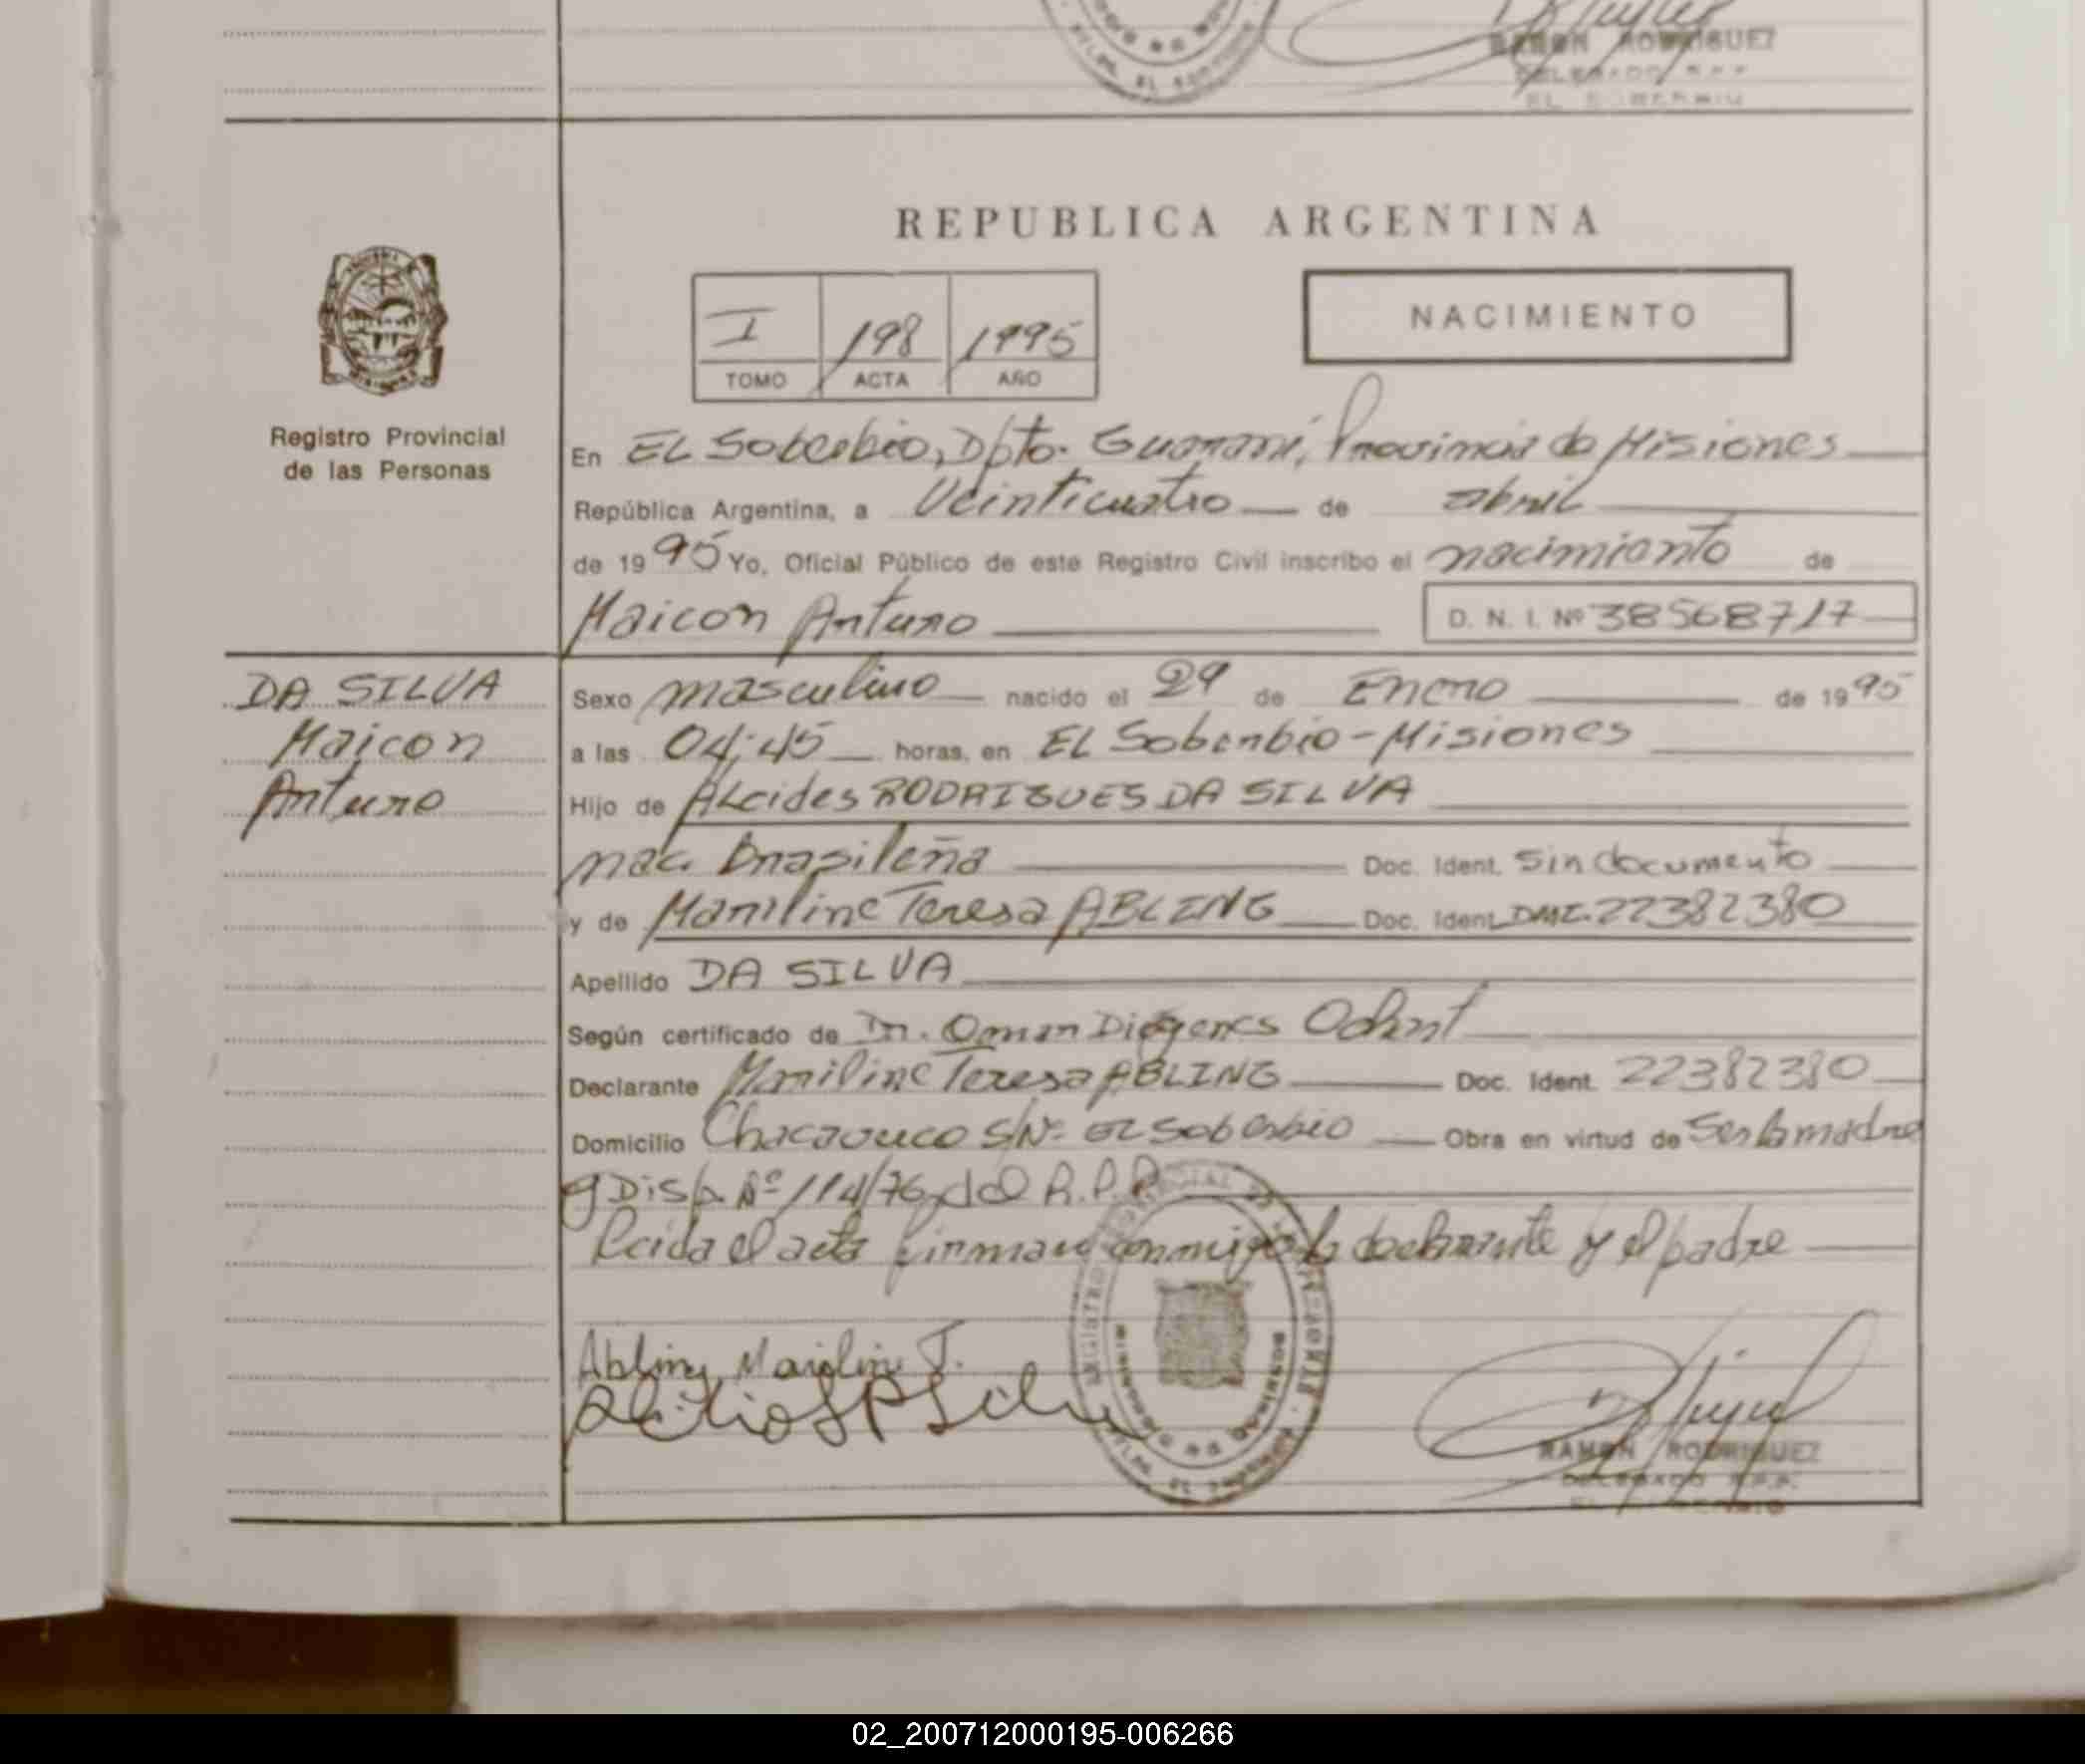 RAMON RODRIGUEZ
DELEGADO R.P.P.
EL SOBERBIO
REPUBLICA ARGENTINA
I 198 1995
TOMO ACTA AÑO
NACIMIENTO
Registro Provincial
de las Personas
En EL Soberbio, Dpto. Guaraní, Provincia de Misiones
República Argentina, a Veinticuatro de abril
de 1995 Yo, Oficial Público de este Registro Civil inscribo el nacimiento de
Maicon Arturo D. N. I. Nº 38568717
DA SILVA
Maicon
Arturo
Sexo masculino nacido el 29 de Enero de 1995
a las 04:45 horas, en EL Soberbio-Misiones
Hijo de Alcides RODRIGUES DA SILVA
nac. brasileña Doc. Ident. Sin documento
y de Mariline Teresa ABLING Doc. Ident. DNI. 22382380
Apellido DA SILVA
Según certificado de Dr. Omar Diógenes
Declarante Mariline Teresa ABLING Doc. Ident. 22382380
Domicilio Chacabuco S/Nº EL Soberbio Obra en virtud de Ser la madre
y Disp. Nº 114/76 del R.P.P.
Leida el acta firman conmigo la declarante y el padre
Abling Mariline T.
RAMON RODRIGUEZ
DELEGADO R.P.P.
EL SOBERBIO
02_200712000195-006266